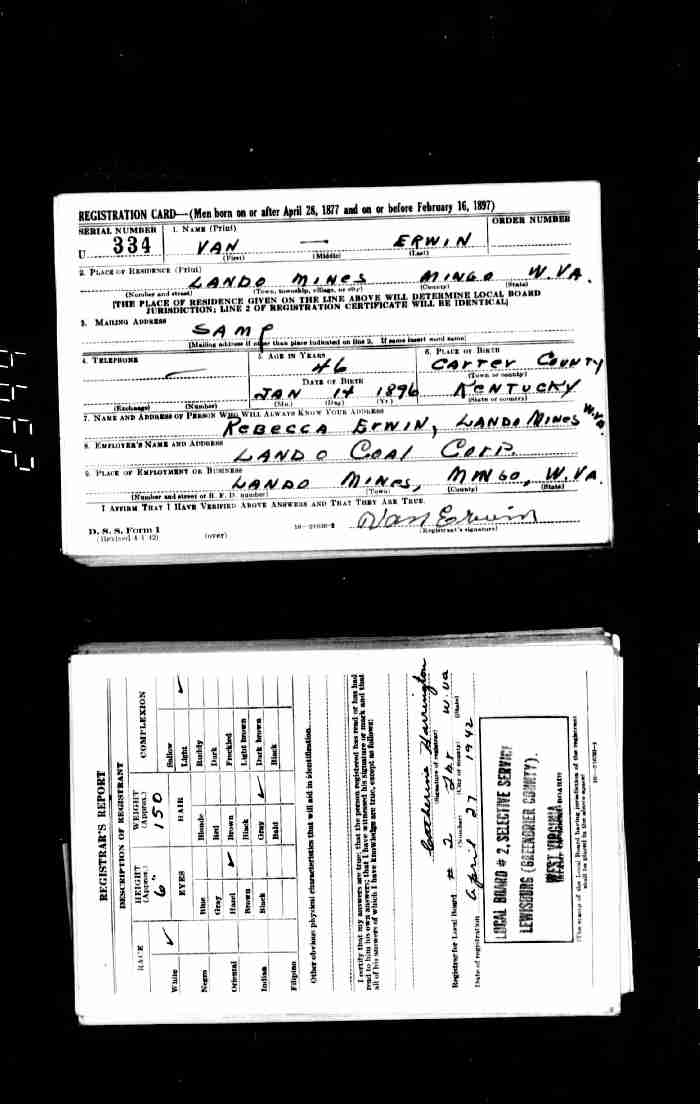 REGISTRATION CARD—(Men born on or after April 28, 1877 and on or before February 16, 1897)
SERIAL NUMBER
1. NAME (Print)
ORDER NUMBER
U 334
VAN — ERWIN
(First) (Middle) (Last)
2. PLACE OF RESIDENCE (Print)
LANDO MINES MINGO W.VA.
(Number and street) (Town, township, village, or city) (County) (State)
[THE PLACE OF RESIDENCE GIVEN ON THE LINE ABOVE WILL DETERMINE LOCAL BOARD
JURISDICTION; LINE 2 OF REGISTRATION CERTIFICATE WILL BE IDENTICAL]
3. MAILING ADDRESS
SAMP
[Mailing address if other than place indicated on line 2. If same insert word same]
4. TELEPHONE
5. AGE IN YEARS
6. PLACE OF BIRTH
—
46
CARTER COUNTY
(Town or county)
DATE OF BIRTH
JAN 14 1896
KENTUCKY
(Exchange) (Number)
(Mo.) (Day) (Yr.)
(State or country)
7. NAME AND ADDRESS OF PERSON WHO WILL ALWAYS KNOW YOUR ADDRESS
REBECCA ERWIN, LANDO MINES W.VA.
8. EMPLOYER'S NAME AND ADDRESS
LANDO COAL CORP.
9. PLACE OF EMPLOYMENT OR BUSINESS
LANDO MINES, MINGO, W.VA.
(Number and street or R. F. D. number) (Town) (County) (State)
I AFFIRM THAT I HAVE VERIFIED ABOVE ANSWERS AND THAT THEY ARE TRUE.
D. S. S. Form 1
(Revised 4-1-42)
(over)
Van Erwin
(Registrant's signature)
REGISTRAR'S REPORT
DESCRIPTION OF REGISTRANT
RACE
HEIGHT (Approx.)
WEIGHT (Approx.)
COMPLEXION
6"
150
EYES
HAIR
White ✓
Negro
Oriental
Indian
Filipino
Blue
Gray
Hazel ✓
Brown
Black
Blonde
Red
Brown
Black
Gray ✓
Bald
Sallow
Light ✓
Ruddy
Dark
Freckled
Light brown
Dark brown
Black
Other obvious physical characteristics that will aid in identification
I certify that my answers are true; that the person registered has read or has had
read to him his own answers; that I have witnessed his signature or mark and that
all of his answers of which I have knowledge are true, except as follows:
Catherine Harrington
(Signature of registrar)
Registrar for Local Board # 2 W.Va
(Number) (City or county) (State)
Date of registration April 27 1942
LOCAL BOARD # 2, SELECTIVE SERVICE
LEWISBURG (GREENBRIER COUNTY).
WEST VIRGINIA
(The stamp of the Local Board having jurisdiction of the registrant
shall be placed in the above space)